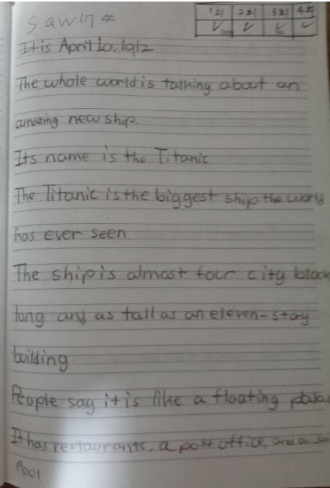 1회 2회 3회 4회
It is April 10, 1912
The whole world is talking about an
amazing new ship.
Its name is the Titanic
The Titanic is the biggest ship the world
has ever seen.
The ship is almost four city block
long and as tall as an eleven-story
building
People say it is like a floating
It has restaurants, a post office, and a
Pool